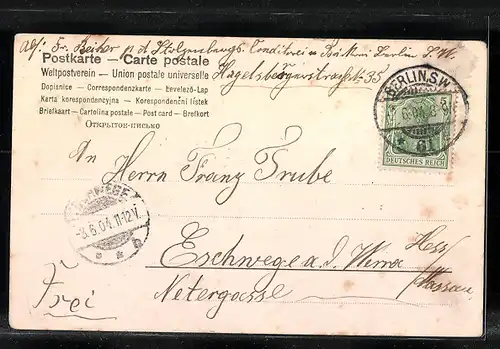 Postkarte — Carte postale
Weltpostverein — Union postale universelle
Hagelsbergerstraße 35
Dopisnice — Correspondenzkarte — Levelező-Lap
Karta korespondencyjna — Korespondenční lístek
Briefkaart — Cartolina postale — Post card — Brefkort
Открытое письмо
BERLIN. S.W.
DEUTSCHES REICH
An Herrn Franz Trube
ESCHWEGE
-3.6.04.11-12V.
Eschwege a. d. Werra
Hess/
Nassau
Netergasse
Frei